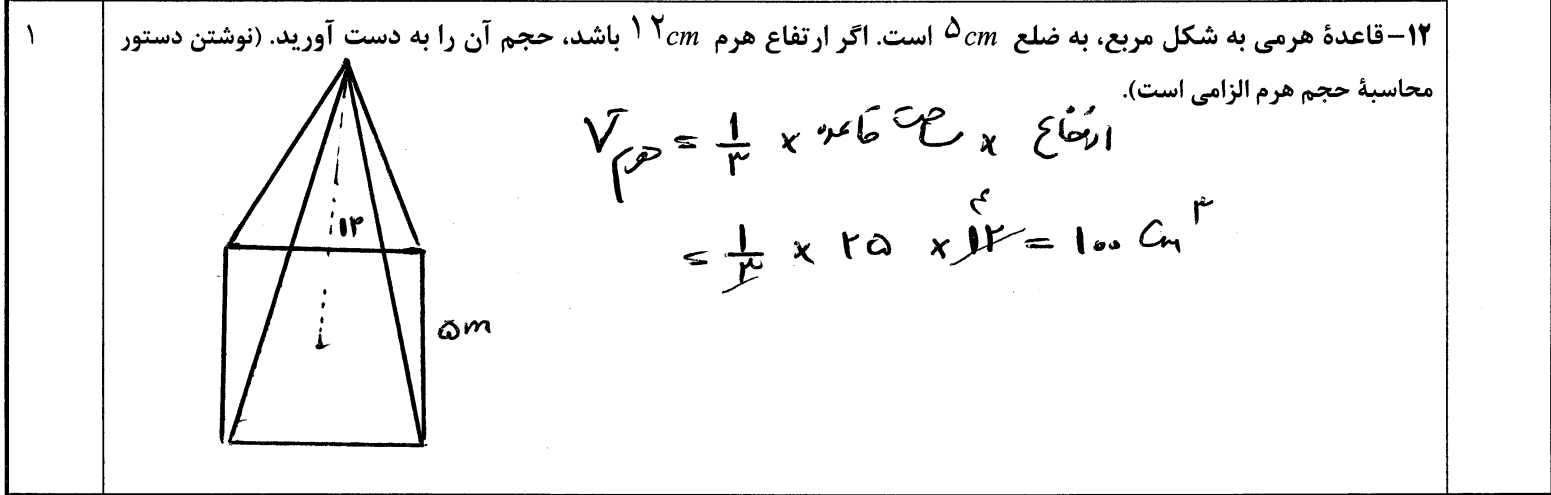 ۱
۱۲–قاعدهٔ هرمی به شکل مربع، به ضلع ۵cm است. اگر ارتفاع هرم ۱۲cm باشد، حجم آن را به دست آورید. (نوشتن دستور
محاسبهٔ حجم هرم الزامی است).
V هرم = ۱/۳ × مساحت قاعده × ارتفاع
= ۱/۳ × ۲۵ × ۱۲ ۴ = ۱۰۰ Cm³
۱۲
۵m